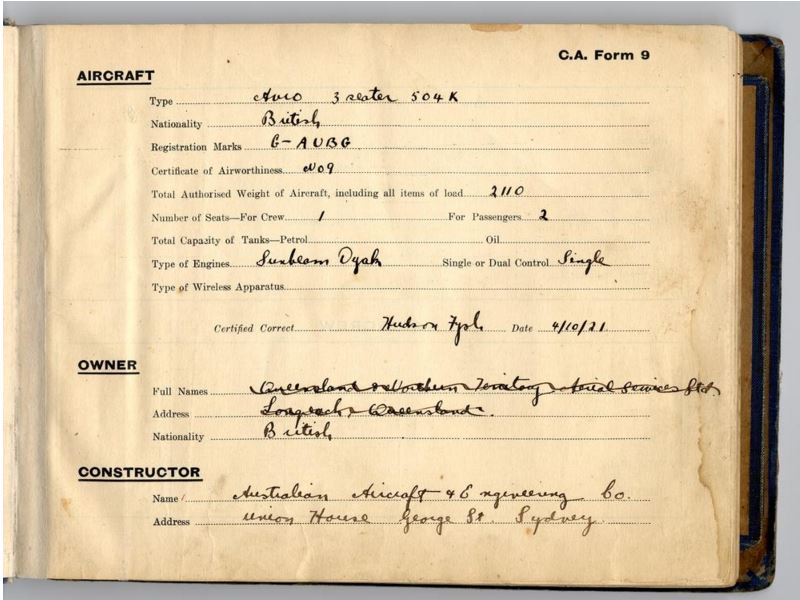 C.A. Form 9
AIRCRAFT
Type Avro 3 seater 504K
Nationality British
Registration Marks G-AUBG
Certificate of Airworthiness No 9
Total Authorised Weight of Aircraft, including all items of load 2110
Number of Seats—For Crew 1 For Passengers 2
Total Capacity of Tanks—Petrol Oil
Type of Engines Sunbeam Dyak Single or Dual Control Single
Type of Wireless Apparatus
Certified Correct Hudson Fysh Date 4/10/21
OWNER
Full Names Queensland & Northern Territory Aerial Services Ltd
Address Longreach Queensland.
Nationality British
CONSTRUCTOR
Name Australian Aircraft & Engineering Co.
Address Union House George St. Sydney.